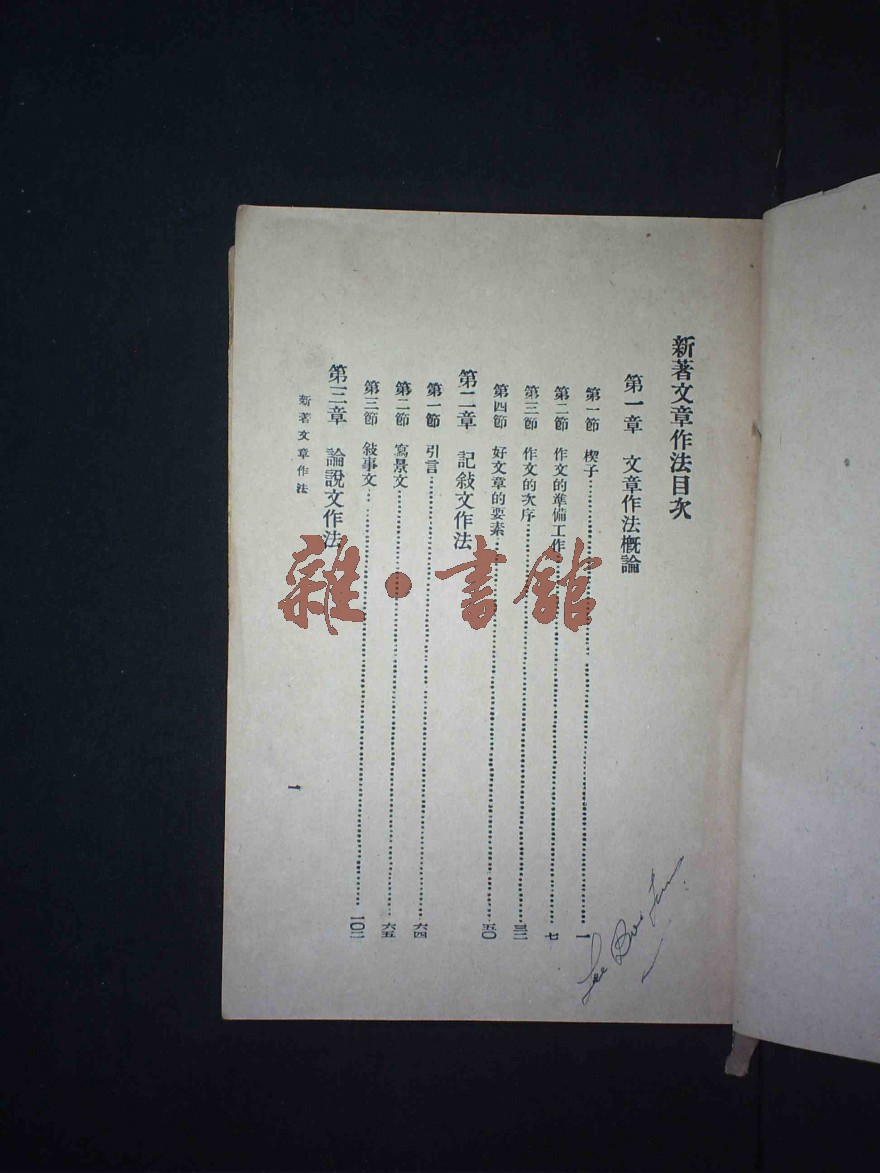 新著文章作法目次
第一章 文章作法概論
第一節 楔子……一
第二節 作文的準備工作……七
第三節 作文的次序……三二
第四節 好文章的要素……五〇
第二章 記敍文作法
第一節 引言……六四
第二節 寫景文……六五
第三節 敍事文……一〇二
第三章 論說文作法
新著文章作法
一
雜·書館
Lee